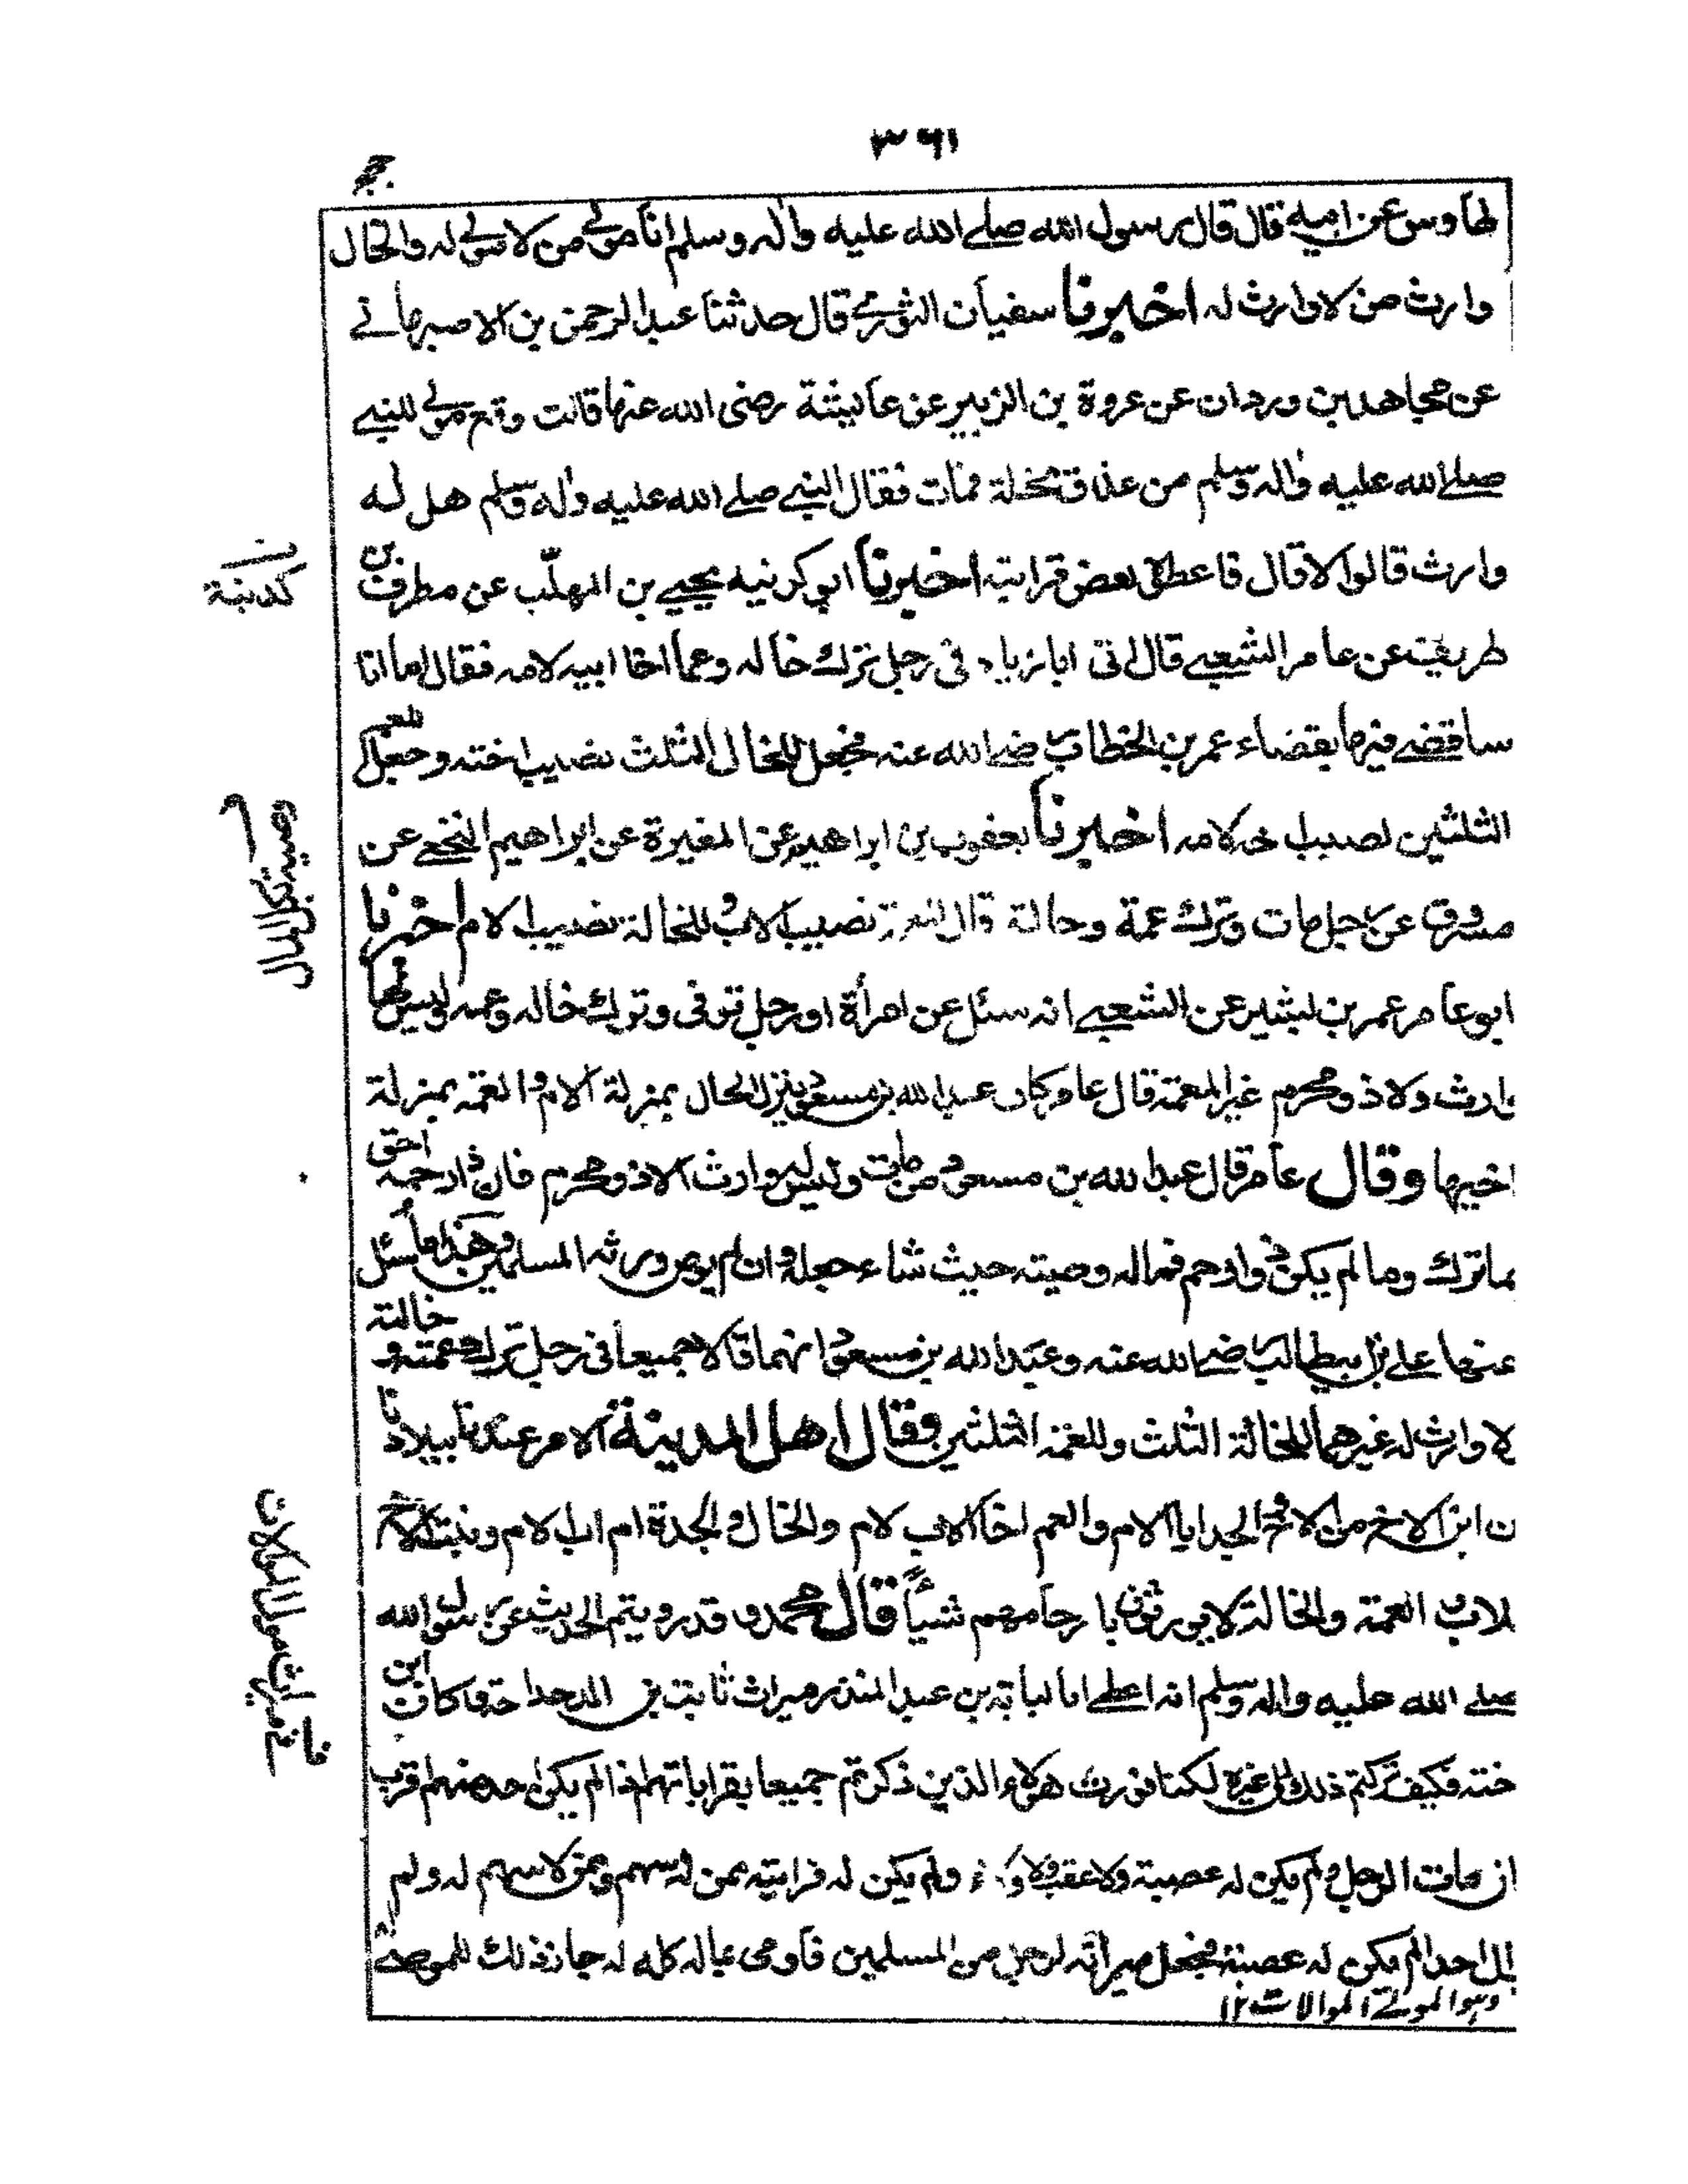 ٣٦١
طاوس عن ابيه قال قال رسول الله صلے الله عليه واٰله وسلم انا مولے من لا مولے له والخال
وارث من لا وارث له اخبرنا سفيان الثورے قال حدثنا عبد الرحمن بن الاصبهانے
عن مجاهد بن وردان عن عروة بن الزبير عن عايشة رضى الله عنها قالت وقع مولے للنبے
صلے الله عليه واٰله وسلم من عذق نخلة فمات فقال النبے صلے الله عليه واٰله وسلم هل له
وارث قالوا لا قال فاعطوه بعض قرابته اخبرنا ابو كدنيه يحيے بن المهلّب عن مطرف بن
كدنبة
طريف عن عامر الشعبے قال اتى ابا زياد فى رجل ترك خاله وعما اخا ابيه لامه فقال اما انا
ساقضے فيها بقضاء عمر بن الخطاب رضے الله عنه فجعل للخال الثلث نصيب اخته وجعل للعم
الثلثين نصيب اخ لامه اخبرنا يعقوب بن ابراهيم عن المغيرة عن ابراهيم النخعے عن
مسروق عن رجل مات وترك عمة وخالة قال للعمة نصيب الاب وللخالة نصيب الام اخبرنا
ابو عامر عمر بن بشير عن الشعبے انه سئل عن امرأة او رجل توفى وترك خاله وعمه ليس لها
وارث ولا ذو محرم غير العمة قال عامر كان عبد الله بن مسعود ينزل الخال بمنزلة الام والعمه بمنزلة
اخيها وقال عامر قال عبد الله بن مسعود من مات وليس له وارث الا ذو محرم فان ذا رحمه احق
بما ترك وما لم يكن ذوا رحم فماله وصيته حيث شاء جعله وان لم يوص ورثه المسلمون هكذا ما سئل
عنها علے بن ابيطالب رضے الله عنه وعبد الله بن مسعود انهما قالا جميعا فى رجل ترك عمته وخالته
لا وارث له غيرهما للخالة الثلث وللعمه الثلثين وقال اهل المدينة الامر عندنا ببلادنا
ن ابن الاخ من الام والجد ابا الام والعم اخا الاب لام والخال والجدة ام اب الام وبنت الاخ
للاب العمة والخالة لا يورثون بارحامهم شيأ قال محمد وقد رويتم الحديث عن رسول الله
صلے الله عليه واٰله وسلم انه اعطے ابا لبابة بن عبد المنذر ميراث ثابت بن الدحداحة وكان ابن
خته فكيف تركتم ذلك الى غيره لكنا نورث هؤلاء الذين ذكرتم جميعا بقراباتهم اذا لم يكن احد منهم اقرب
ان مات الرجل ولم يكن له عصبة ولا عقب ولا ولم يكن له قرابته ممن له سهم وممن لا سهم له ولم
ال احدا لم يكن له عصبة فجعل ميراثه لرجل من المسلمين فاوصى بماله كله له جاز ذلك للموصے
وهو المولے الموالات ١٢